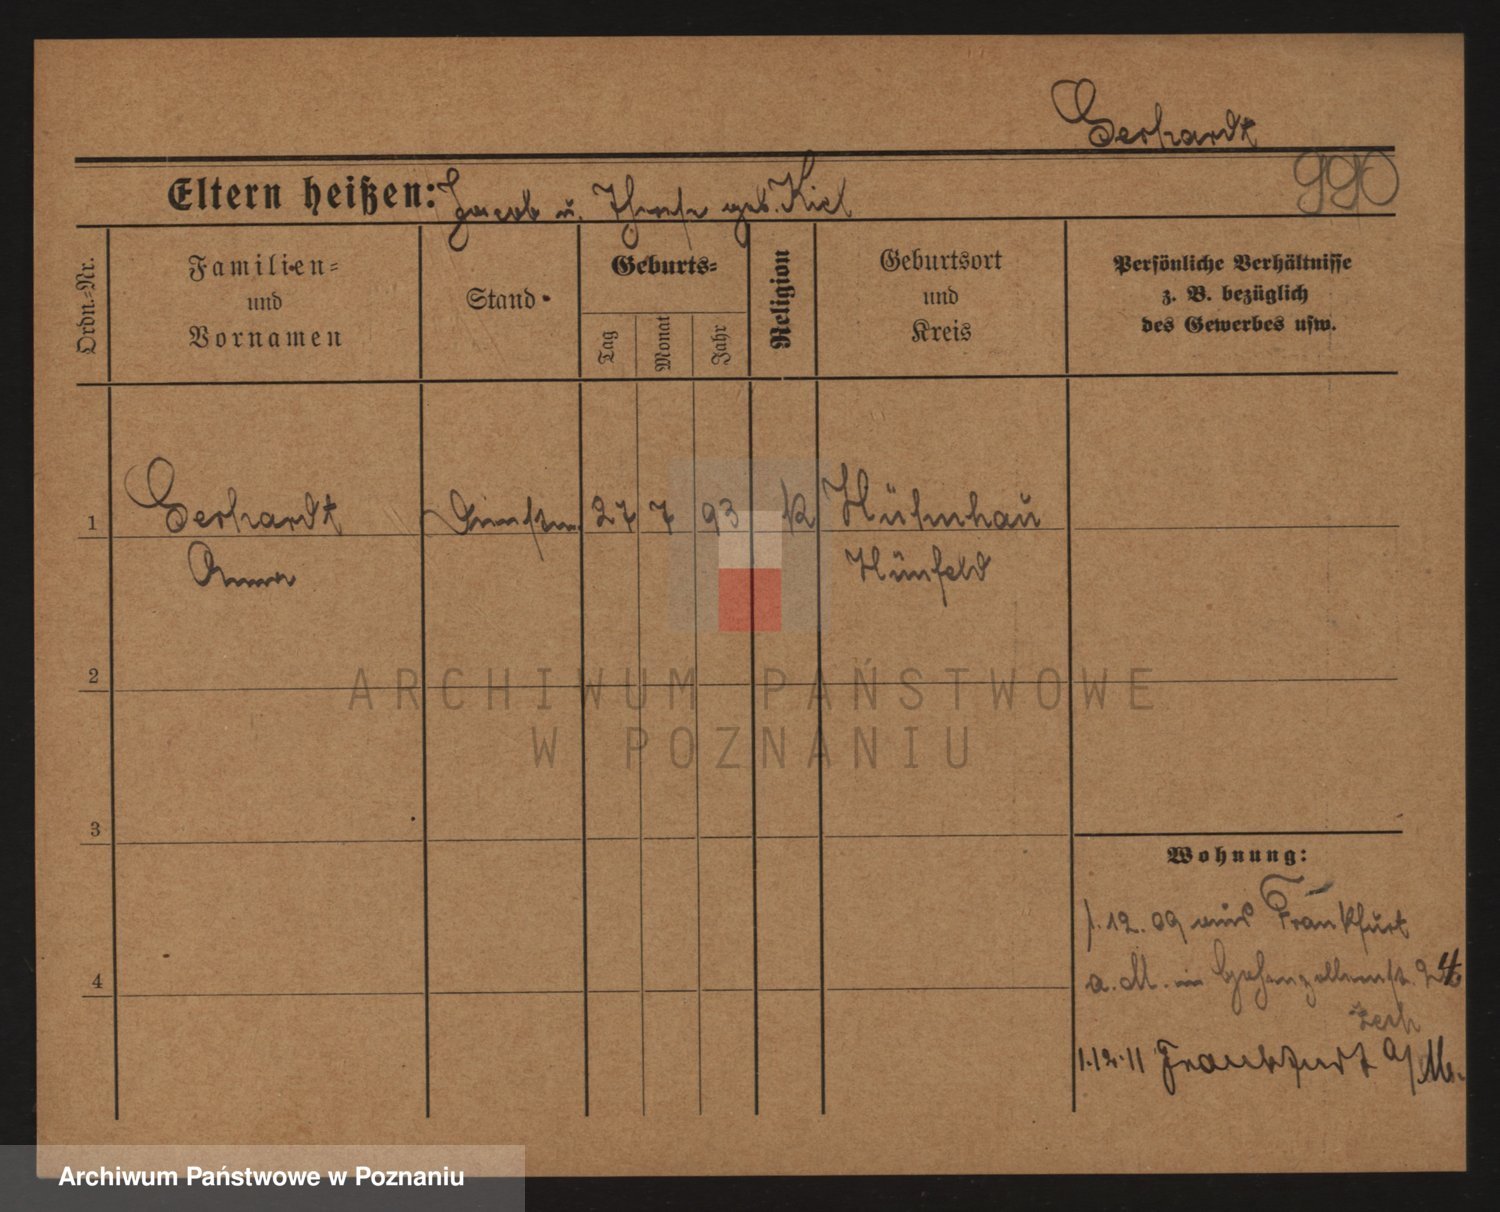 Gerhardt
990
Eltern heißen: Jacob u. Therese geb. Kiel
Ordn.=Nr.
Familien=
und
Vornamen
Stand
Geburts=
Tag
Monat
Jahr
Religion
Geburtsort
und
Kreis
Persönliche Verhältnisse
z. B. bezüglich
des Gewerbes usw.
1
Gerhardt
27 7 93 K
Anna
Hünfeld
2
ARCHIWUM PAŃSTWOWE
W POZNANIU
3
Wohnung:
1.12.09 aus Frankfurt
a. M. in Hohenzollernst. 24
4
1.12.11 Frankfurt a/M.
Archiwum Państwowe w Poznaniu